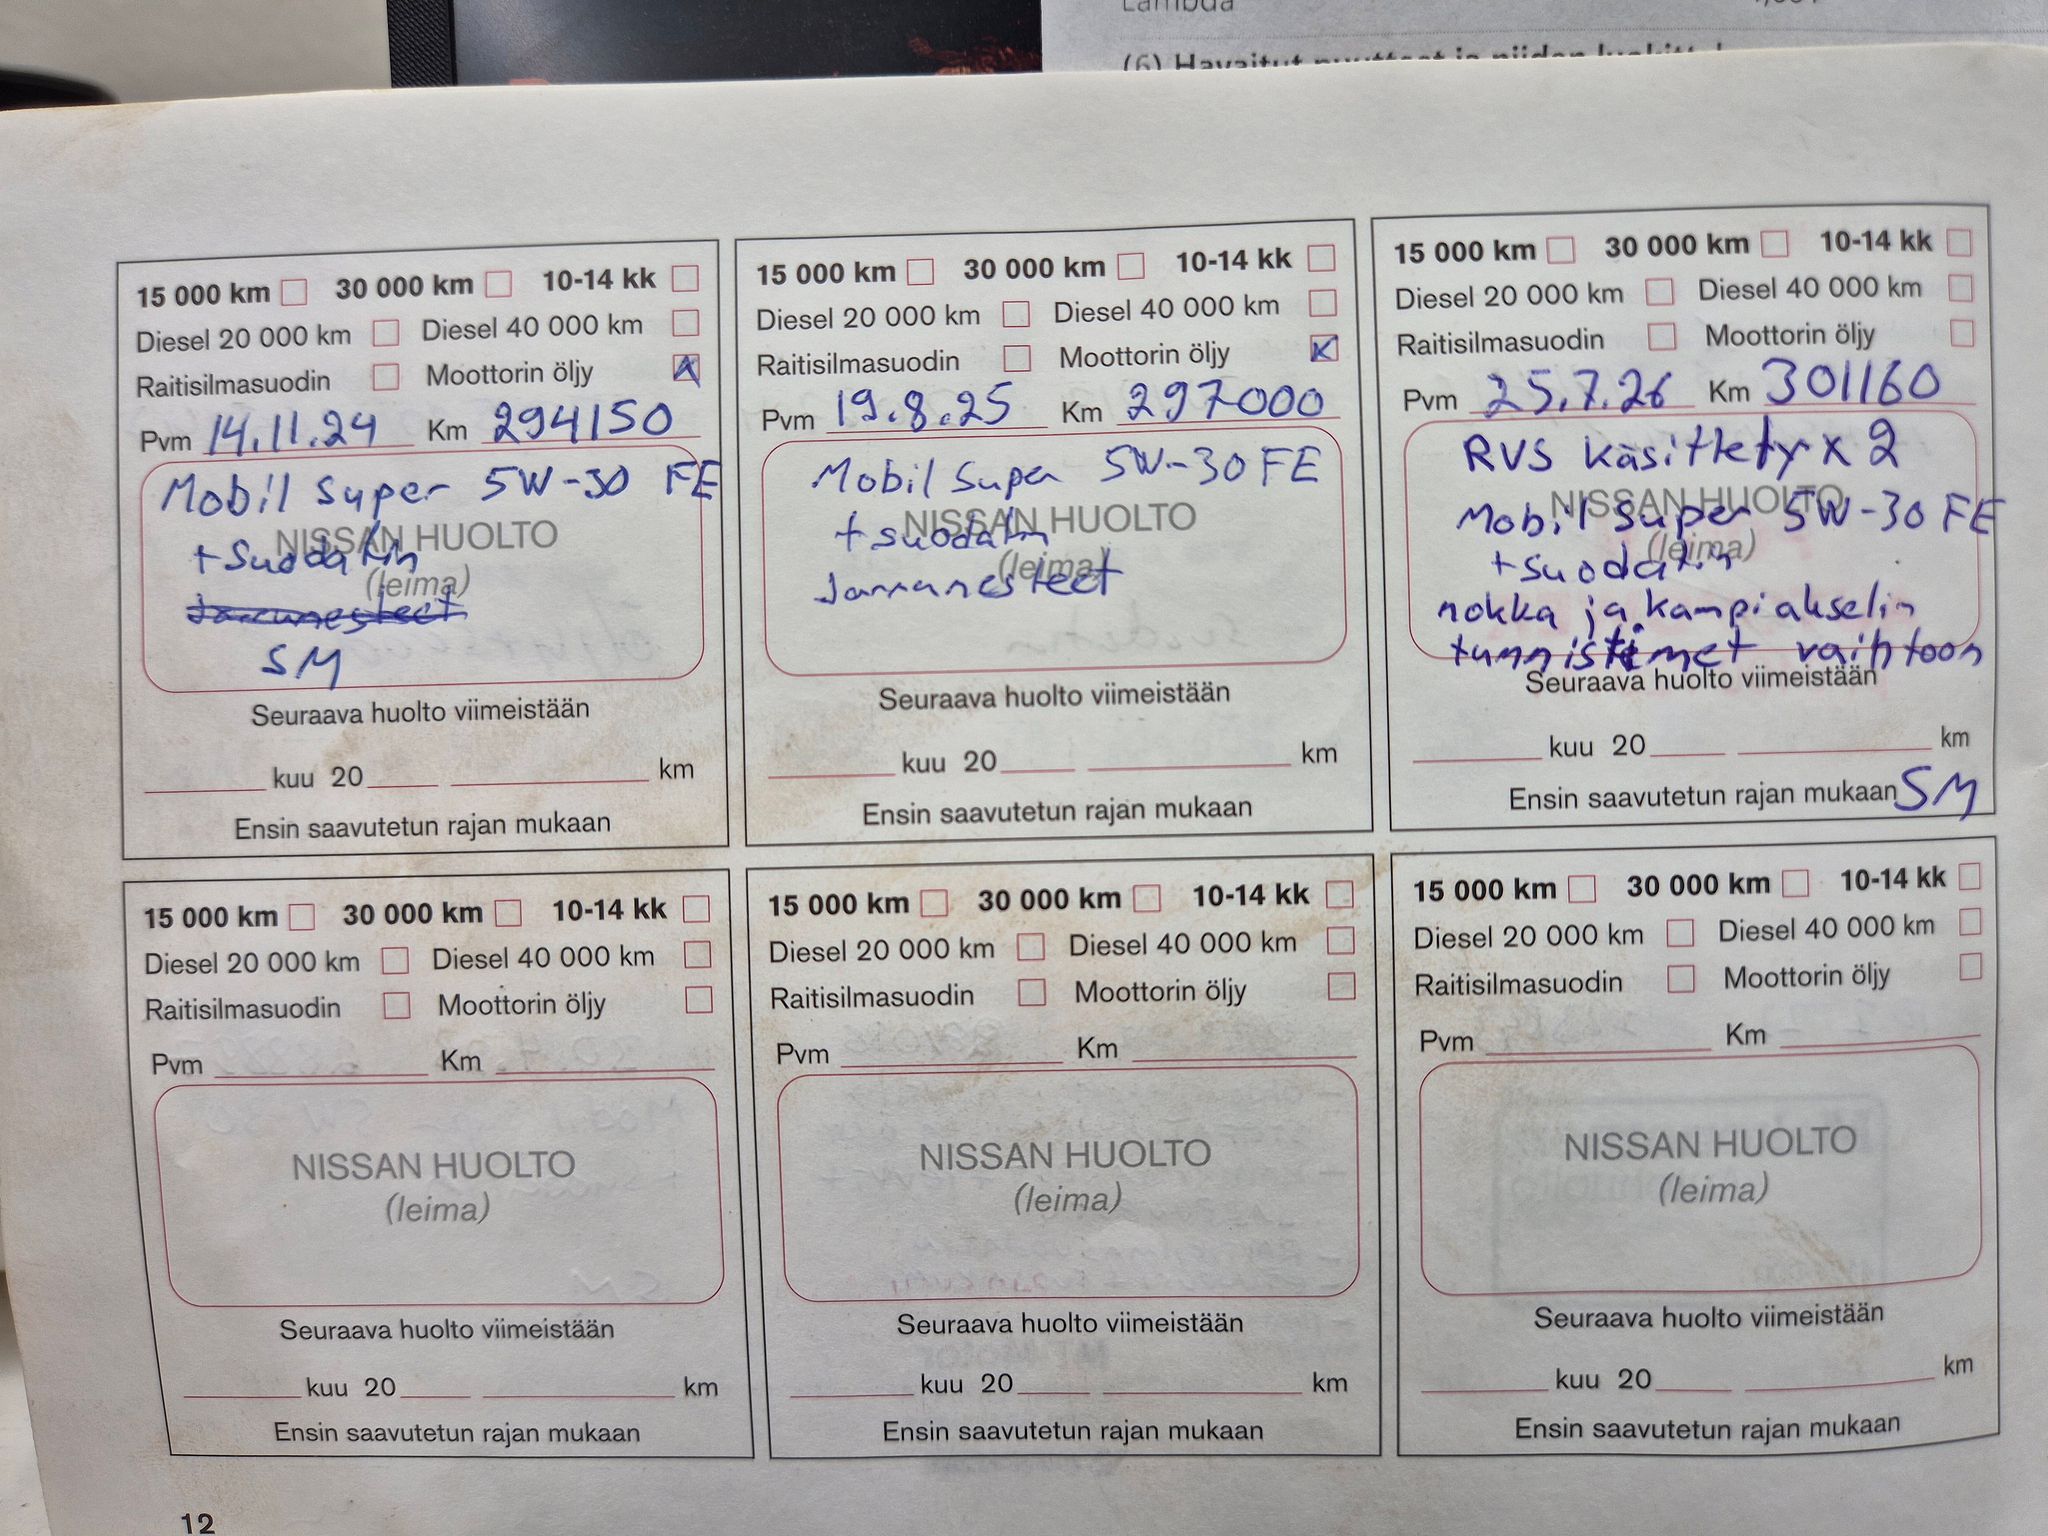 Lambda
(6) Havaitut puutteet ja niiden
15 000 km 30 000 km 10-14 kk
Diesel 20 000 km Diesel 40 000 km
Raitisilmasuodin Moottorin öljy
Pvm 14.11.24 Km 294150
Mobil super 5W-30 FE
NISSAN HUOLTO
+ suodatin
(leima)
Jarrunesteet
SM
Seuraava huolto viimeistään
kuu 20 km
Ensin saavutetun rajan mukaan
15 000 km 30 000 km 10-14 kk
Diesel 20 000 km Diesel 40 000 km
Raitisilmasuodin Moottorin öljy
Pvm 19.8.25 Km 297000
Mobil super 5W-30 FE
NISSAN HUOLTO
+ suodatin
(leima)
Jarrunesteet
Seuraava huolto viimeistään
kuu 20 km
Ensin saavutetun rajan mukaan
15 000 km 30 000 km 10-14 kk
Diesel 20 000 km Diesel 40 000 km
Raitisilmasuodin Moottorin öljy
Pvm 25.7.26 Km 301160
RVS käsittely x 2
NISSAN HUOLTO
Mobil super 5W-30 FE
(leima)
+ suodatin
nokka ja kampiakselin
tunnistimet vaihtoon
Seuraava huolto viimeistään
kuu 20 km
Ensin saavutetun rajan mukaan SM
15 000 km 30 000 km 10-14 kk
Diesel 20 000 km Diesel 40 000 km
Raitisilmasuodin Moottorin öljy
Pvm Km
NISSAN HUOLTO
(leima)
Seuraava huolto viimeistään
kuu 20 km
Ensin saavutetun rajan mukaan
15 000 km 30 000 km 10-14 kk
Diesel 20 000 km Diesel 40 000 km
Raitisilmasuodin Moottorin öljy
Pvm Km
NISSAN HUOLTO
(leima)
Seuraava huolto viimeistään
kuu 20 km
Ensin saavutetun rajan mukaan
15 000 km 30 000 km 10-14 kk
Diesel 20 000 km Diesel 40 000 km
Raitisilmasuodin Moottorin öljy
Pvm Km
NISSAN HUOLTO
(leima)
Seuraava huolto viimeistään
kuu 20 km
Ensin saavutetun rajan mukaan
12